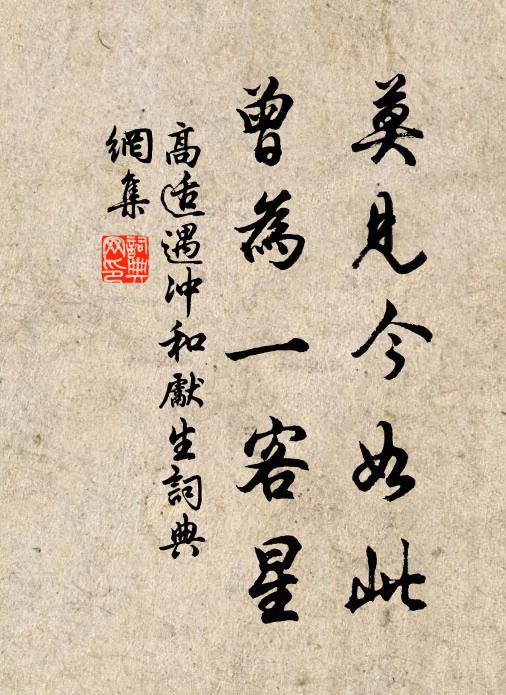 莫見今如此
曾為一客星
高適遇沖和獻生詞典
網集
詞典
网印